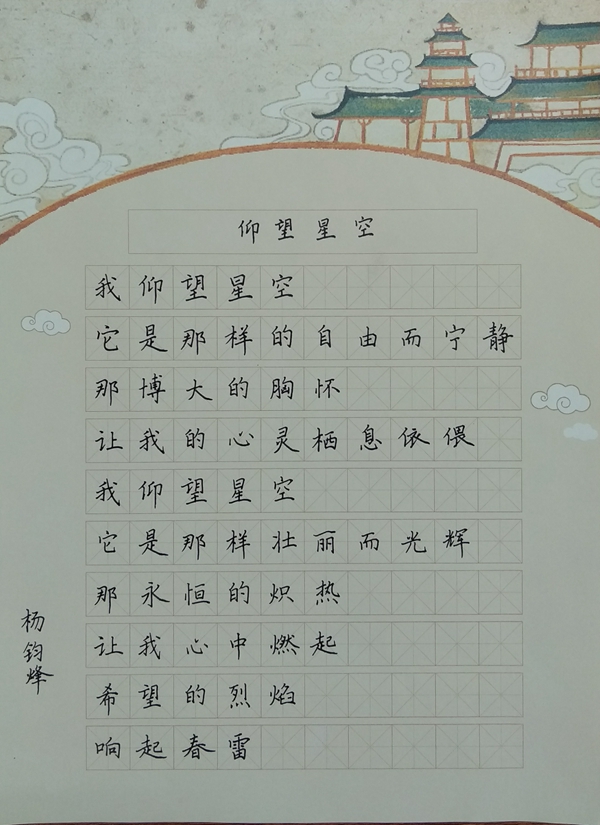 仰望星空
我仰望星空
它是那样的自由而宁静
那博大的胸怀
让我的心灵栖息依偎
我仰望星空
它是那样壮丽而光辉
那永恒的炽热
让我心中燃起
希望的烈焰
响起春雷
杨钧烽